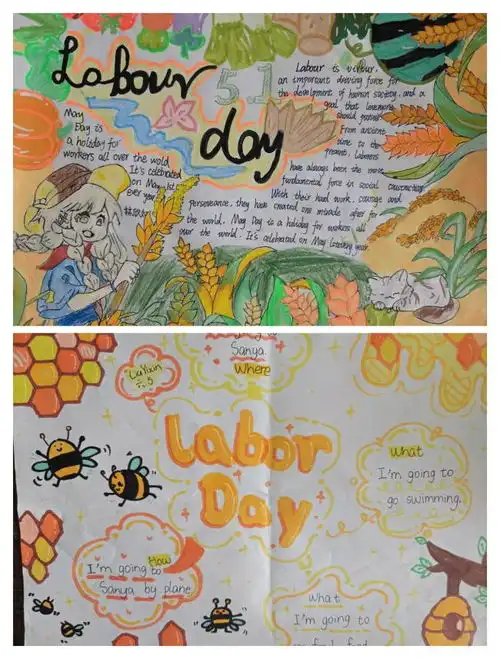 Labour
51
day
Labour is virtue,
an important driving force for
the development of human society, and a
goal that
should
From ancient
time to the
present,
have always been the most
fundamental force in social
With their hard work, courage and
Perseverance, they have created one miracle after
the world. May Day is a holiday for workers all
over the world. It's celebrated on May
May
Day is
a holiday for
workers all over the wold
It's celebrated
on May 1st
ever year
Sanya.
Where
Labor
Day
what
I'm going to
go swimming.
How
I'm going to
Sanya by plane
what
I'm going to